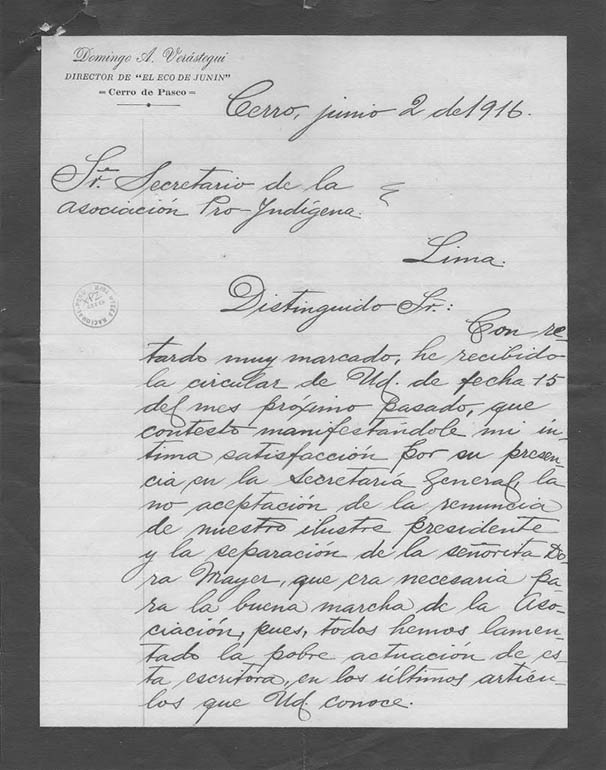 Domingo A. Verástegui
DIRECTOR DE "EL ECO DE JUNIN"
= Cerro de Pasco =
Cerro, junio 2 de 1916.
Sr. Secretario de la
Asociación Pro-Indígena.
Lima.
Distinguido Sr.:
Con re-
tardo muy marcado, he recibido
la circular de Ud. de fecha 15
del mes próximo pasado, que
contesto manifestándole mi ín-
tima satisfacción por su presen-
cia en la Secretaría General, la
no aceptación de la renuncia
de nuestro ilustre presidente
y la separación de la señorita Do-
ra Mayer, que era necesaria pa-
ra la buena marcha de la Aso-
ciación, pues, todos hemos lamen-
tado la pobre actuación de es-
ta escritora, en los últimos artícu-
los que Ud. conoce.